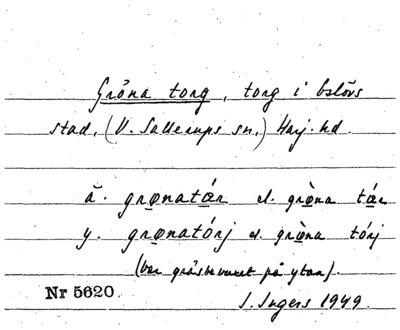 Gröna torg, torg i Eslövs
stad, (V. Sallerups sn,) Harj. hd.
ä. grønatær el. grø̀na tǽr
y. grønatórj el. grø̀na tórj
(var gräsbevuxet på ytan).
Nr 5620.
J. Ingers 1949.